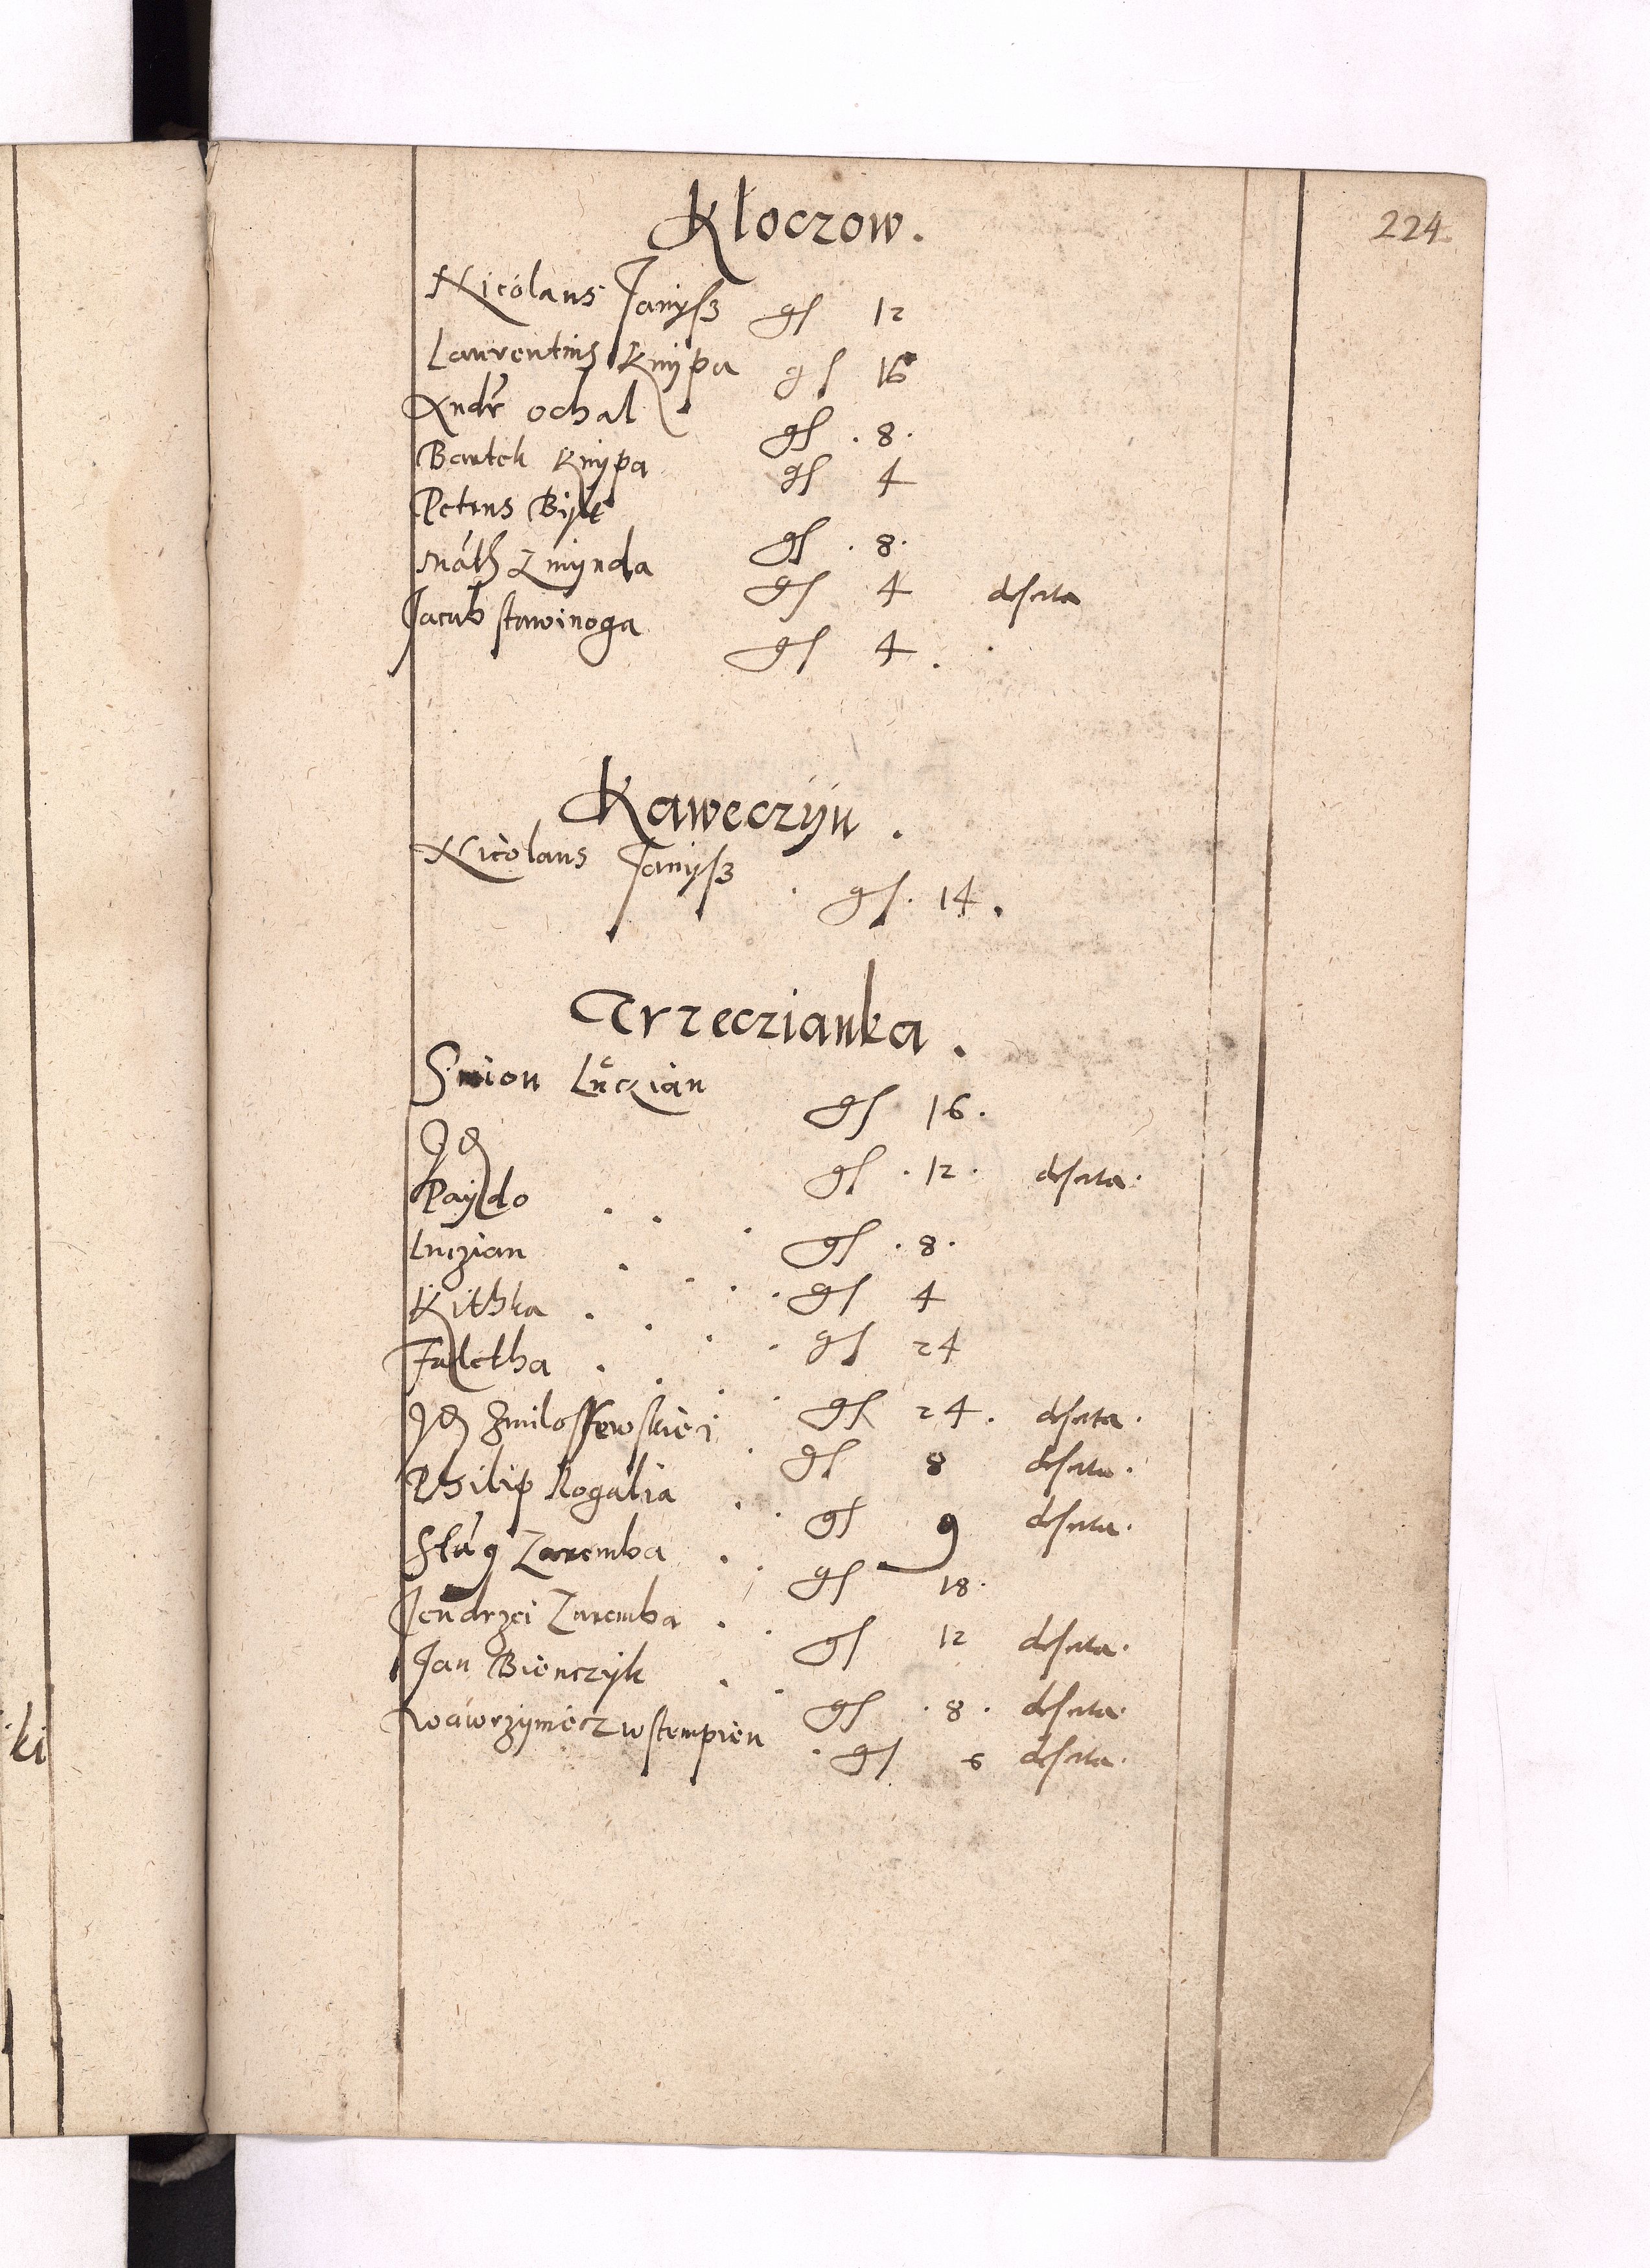 224
Kłoczow.
Nicolaus Janyſz gſ 12
Laurentius Knypa gſ 16
Andr ochal gſ . 8 .
Bartek Knypa gſ 4
Petrus gſ . 8 .
Math Zmynda gſ 4 deſerta
Jacub ſtawinoga gſ 4 .
Kaweczyn .
Nicolaus Janyſz . gſ . 14 .
Trzeczianka .
Simon Luczian gſ 16 .
Id gſ . 12 . deſerta .
Paydo . . . gſ . 8 .
Luczian . . . . gſ 4
Kithka . . . . gſ 24
Faletha . . . . gſ 24 . deſerta .
Id Zmiloſſewskiei . gſ 8 deſerta .
Philip Rogalia . . gſ 9 deſerta .
Zaremba . . gſ 18 .
Jendrzei Zaremba . . gſ 12 deſerta .
Jan Bienczyk . . gſ . 8 . deſerta .
Wawrzyniecz wſtempien . gſ 6 deſerta .
ki